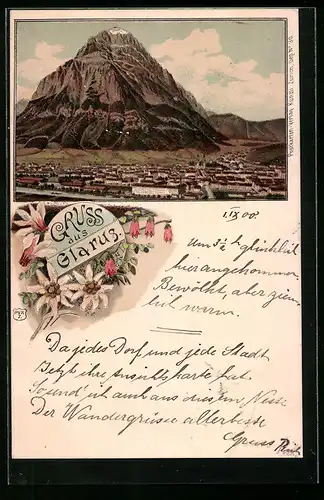 Gruss
aus
Glarus.
1.IX.00.
Um 5½ h glücklich
hier angekommen.
Bewölkt, aber ziem-
lich warm.
Da jedes Dorf und jede Stadt
Jetzt ihre Ansichtskarte hat
So send' ich auch aus diesem Neste
Der Wandergrüsse allerbeste
Gruss